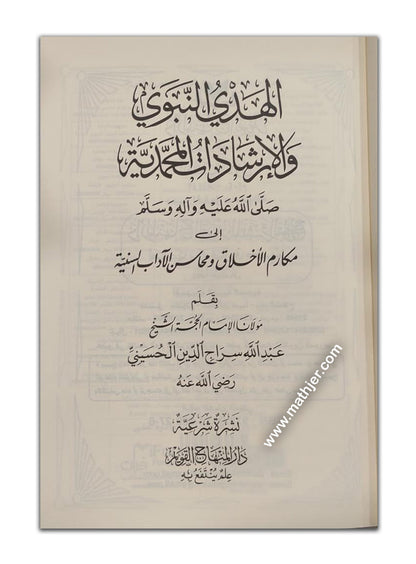 الهَدْيُ النَّبَوِيّ
وَالإِرْشَادَاتُ المُحَمَّدِيَّة
صَلَّى اللهُ عَلَيْهِ وَآلِهِ وَسَلَّم
إلى
مكارم الأخلاق ومحاسن الآداب السنية
بِقَلَم
مَولانا الإمَام الحُجَّة الشَّيْخ
عَبْدِ اللهِ سِرَاجِ الدِّينِ الحُسَيْنِيّ
رَضِيَ اللهُ عَنْهُ
نَشْرَةٌ شَرْعِيَّةٌ
دَارُ المِنْهَاجِ القَوِيم
عِلمٌ يُنتَفَعُ بِهِ
www.mathjer.com